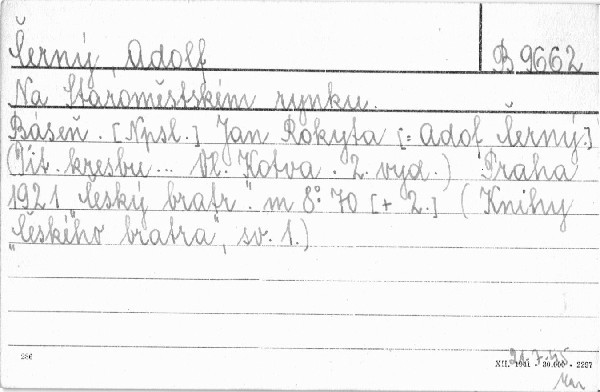 Černý, Adolf B 9662
Na Staroměstském rynku.
Báseň. [Npsl.] Jan Rokyta [= Adolf Černý.]
(Tit. kresbu ... Vl. Kotva. 2. vyd.) Praha
1921 "Český bratr." m 8° 70 [+ 2.] (Knihy
"Českého bratra", sv. 1.)
286 XII. 1941 - 30.000 - 2257